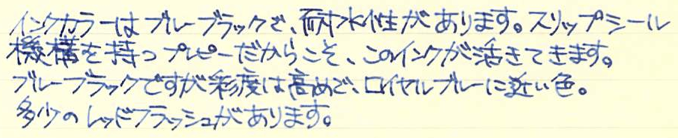 インクカラーはブルーブラックで、耐水性があります。スリップシール
機構を持つプレピーだからこそ、このインクが活きてきます。
ブルーブラックですが彩度は高めで、ロイヤルブルーに近い色。
多少のレッドフラッシュがあります。